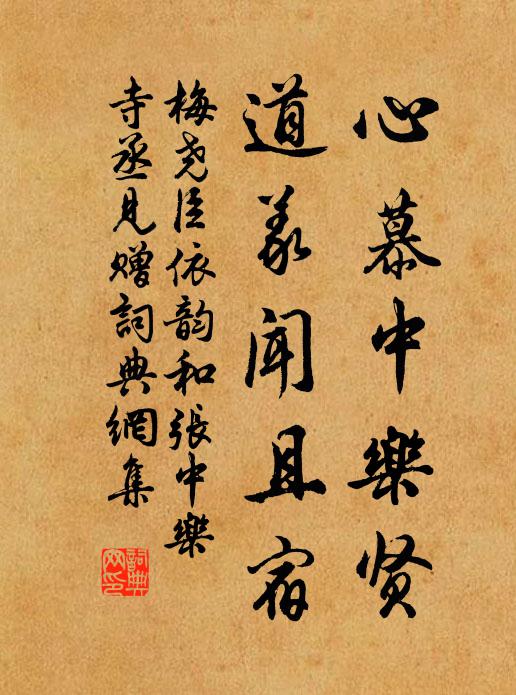 心慕中樂贤
道义聞且宿
梅尧臣依韵和张中樂
寺丞見赠詞典網集
詞典網印